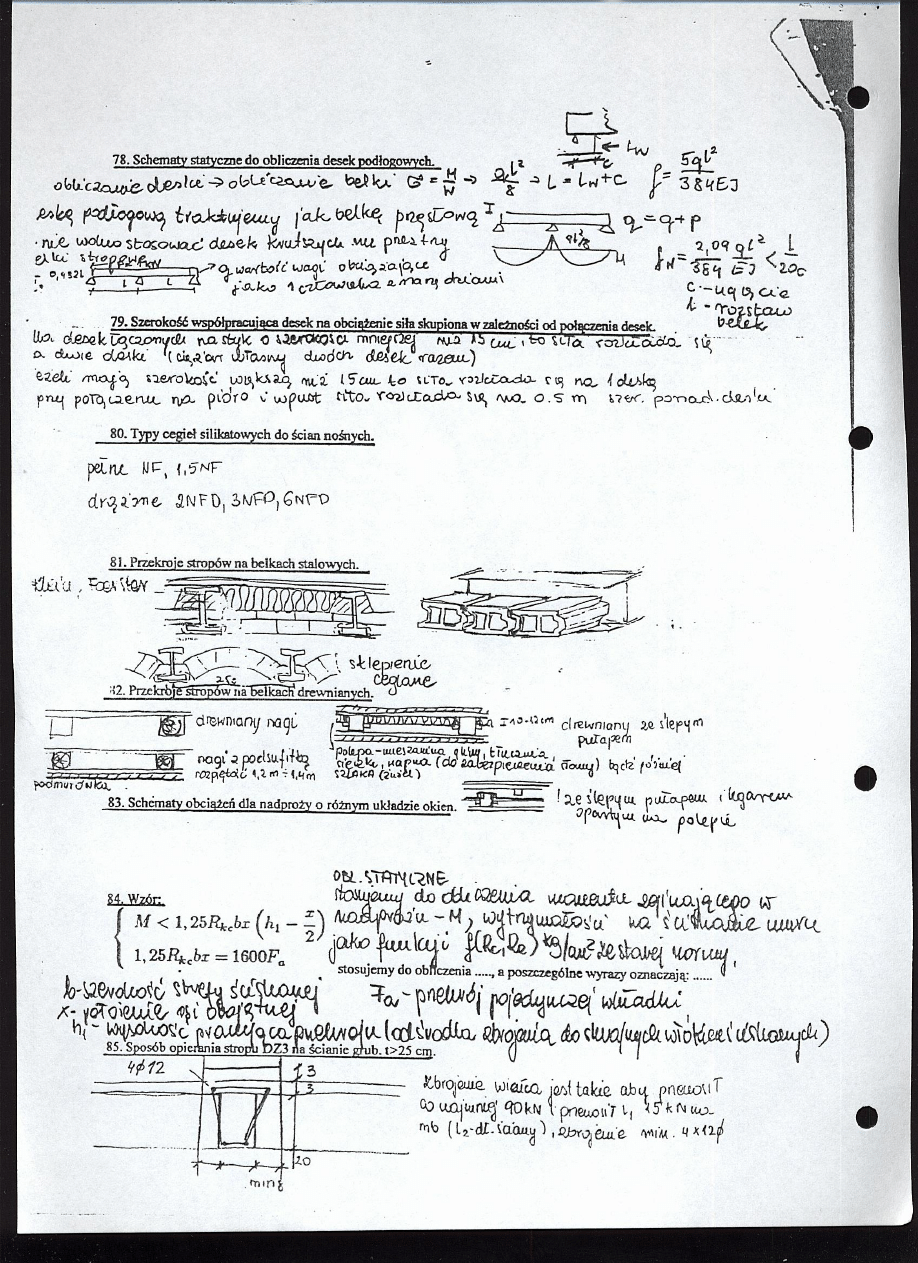 78. Schematy statyczne do obliczenia desek podłogowych.
obliczanie deski → obliczanie belki σ = M/W → ql²/8 → L = Lw + C f = 5ql²/384EJ
Lw
eskę podłogową traktujemy jak belkę przęsłową I q = q + p
nie wolno stosować desek krótszych niż przez trzy
elki stropowe
q wartość wagi obciążające
jako 1 człowieka
fN = 2,09 ql²/384 EJ < L/200
c - ugięcie
L - rozstaw
belek
79. Szerokość współpracująca desek na obciążenie siła skupiona w zależności od połączenia desek.
dla desek łączonych na styk o szerokości mniejszej niż 15 cm, to siła rozkłada się
a dwie deski (ciężar własny dwóch desek razem)
eżeli mają szerokość większą niż 15cm to siła rozkłada się na 1 deskę
przy połączeniu na pióro i wpust siła rozkłada się na 0.5 m szer. ponad. deski
80. Typy cegieł silikatowych do ścian nośnych.
pełne NF, 1,5NF
drążone 2NFD, 3NFD, 6NFD
81. Przekroje stropów na belkach stalowych.
Kleina,
sklepienie
ceglane
82. Przekroje stropów na belkach drewnianych.
drewniany nagi
10-12cm
drewniany ze ślepym
pułapem
nagi z podsufitką
rozpiętość 1,2m ÷ 1,4m
podmurówka
polepa - mieszanina gliny, tłucznia,
sieczki, wapna (do zabezpieczenia słomy) bądź później
SZLAKA (żużel)
83. Schematy obciążeń dla nadproży o różnym układzie okien.
ze ślepym pułapem i legarem
opartym na polepie
84. Wzór:
M < 1,25R_kc bx (h₁ − x/2)
1,25R_kc bx = 1600F_a
OBL. STATYCZNE
stosujemy do obliczenia momentu zginającego w
nadprożu - M, wytrzymałości na ściskanie muru
jako funkcji f(Rc, Re) kg/cm² ze starej normy,
stosujemy do obliczenia ....., a poszczególne wyrazy oznaczają: ......
b - szerokość strefy ściskanej Fa - przekrój pojedynczej wkładki
x - położenie osi obojętnej
h₁ - wysokość pracująca przekroju (od środka zbrojenia do skrajnych włókien ściskanych)
85. Sposób opierania stropu DZ3 na ścianie grub. t>25 cm.
4ϕ12
3
3
20
min 8
Zbrojenie wieńca jest takie aby przenosił
co najmniej 90kN i przenosił 15kN na
mb (l₂ - dł. ściany), zbrojenie min. 4×12ϕ